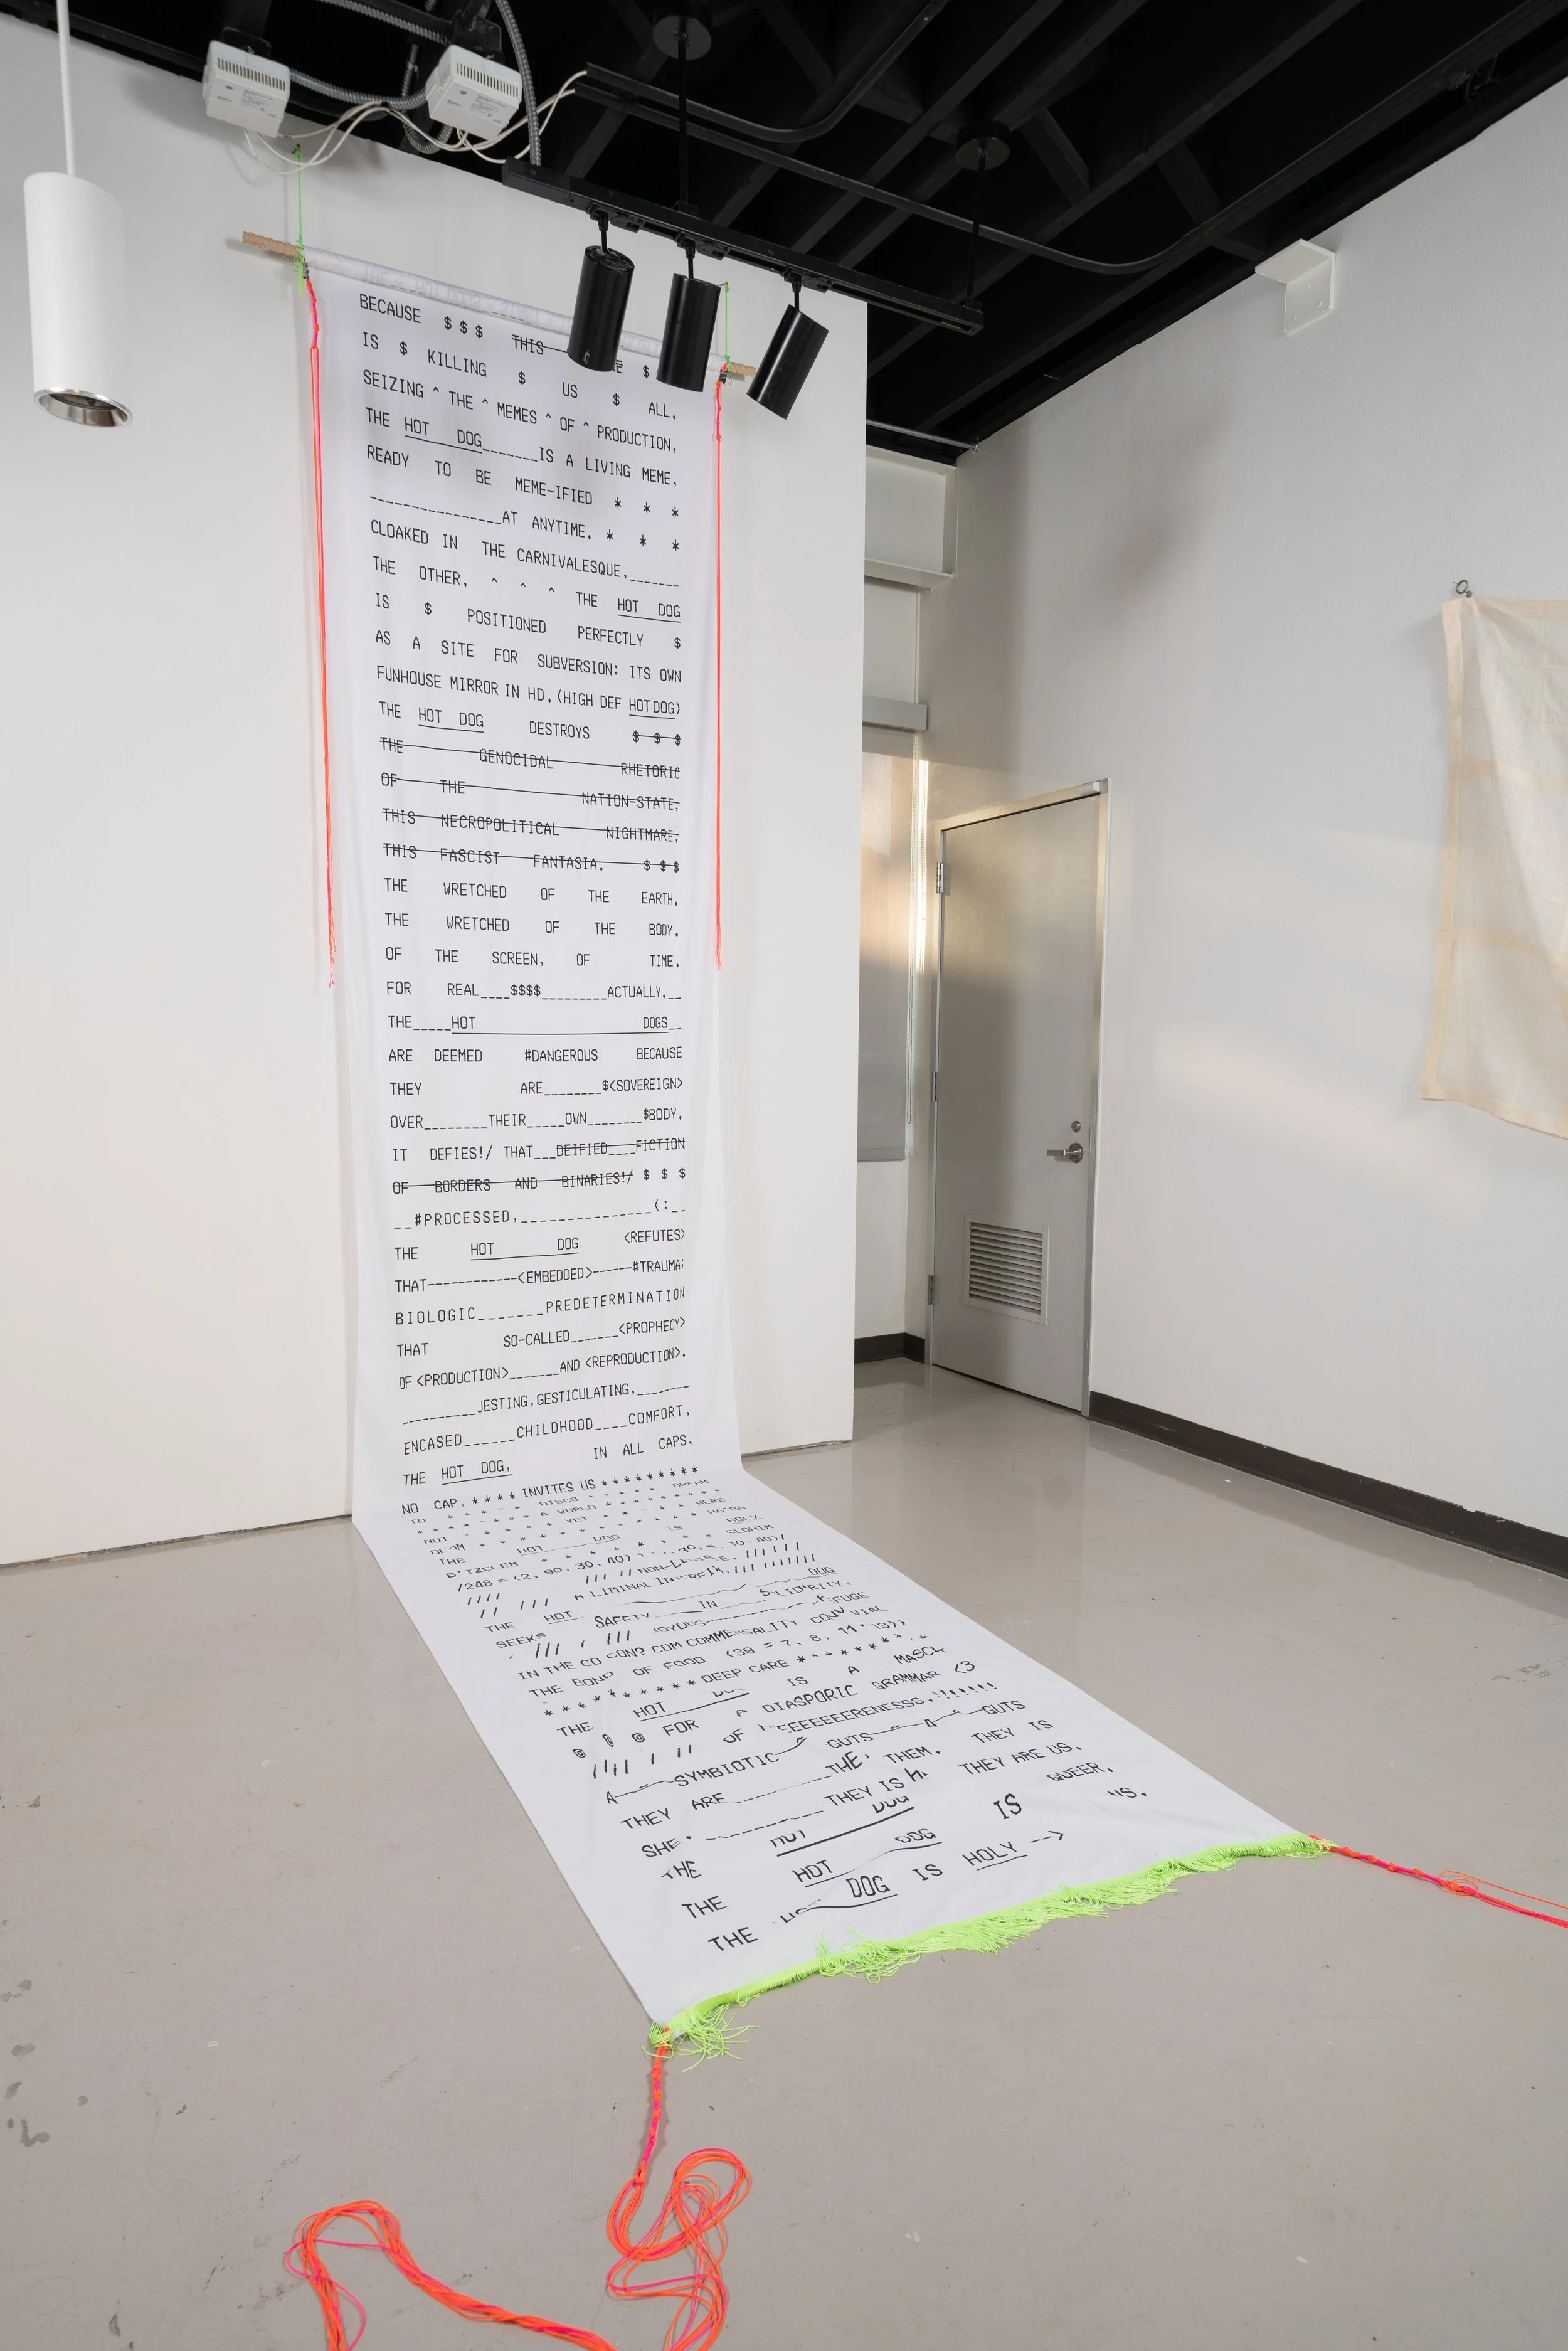 BECAUSE $ $ $ THIS $
IS $ KILLING $ US $ ALL.
SEIZING ^ THE ^ MEMES ^ OF ^ PRODUCTION,
THE HOT DOG_______IS A LIVING MEME,
READY TO BE MEME-IFIED * * *
________________AT ANYTIME. * * *
CLOAKED IN THE CARNIVALESQUE,_______
THE OTHER, ^ ^ ^ THE HOT DOG
IS $ POSITIONED PERFECTLY $
AS A SITE FOR SUBVERSION: ITS OWN
FUNHOUSE MIRROR IN HD. (HIGH DEF HOT DOG)
THE HOT DOG DESTROYS $ $ $
THE GENOCIDAL RHETORIC
OF THE NATION-STATE,
THIS NECROPOLITICAL NIGHTMARE,
THIS FASCIST FANTASIA. $ $ $
THE WRETCHED OF THE EARTH,
THE WRETCHED OF THE BODY,
OF THE SCREEN, OF TIME.
FOR REAL____$$$$_________ACTUALLY.__
THE_____HOT DOGS__
ARE DEEMED #DANGEROUS BECAUSE
THEY ARE________$<SOVEREIGN>
OVER________THEIR_____OWN________$BODY.
IT DEFIES!/ THAT___DEIFIED____FICTION
OF BORDERS AND BINARIES!/ $ $ $
__#PROCESSED,________________(:__
THE HOT DOG <REFUTES>
THAT------------<EMBEDDED>------#TRAUMA:
BIOLOGIC_______PREDETERMINATION
THAT SO-CALLED_______<PROPHECY>
OF <PRODUCTION>_______AND <REPRODUCTION>.
__________JESTING,GESTICULATING,________
ENCASED______CHILDHOOD____COMFORT,
THE HOT DOG, IN ALL CAPS,
NO CAP. * * * * INVITES US * * * * * * * * *
TO DISCO DREAM
A WORLD
NOT YET HERE.
THE HOT DOG IS HOLY
B'TZELEM ELOHIM
//// A LIMINAL
THE HOT DOG
SEEKS SAFETY IN SOLIDARITY,
JOYOUS
IN THE CO CON? COM COMMENSALITY CONVIVIAL
THE BOND OF FOOD (39 = 7, 8, 11, 13);
* * * * * * * * * * DEEP CARE * * * * * * * * *
THE HOT IS A
@ @ @ FOR A DIASPORIC GRAMMAR <3
OF
A SYMBIOTIC GUTS 4 GUTS
THEY ARE THEM. THEY IS
SHE THEY IS THEY ARE US.
THE HOT DOG IS QUEER,
THE HOT DOG IS
THE DOG IS HOLY -->